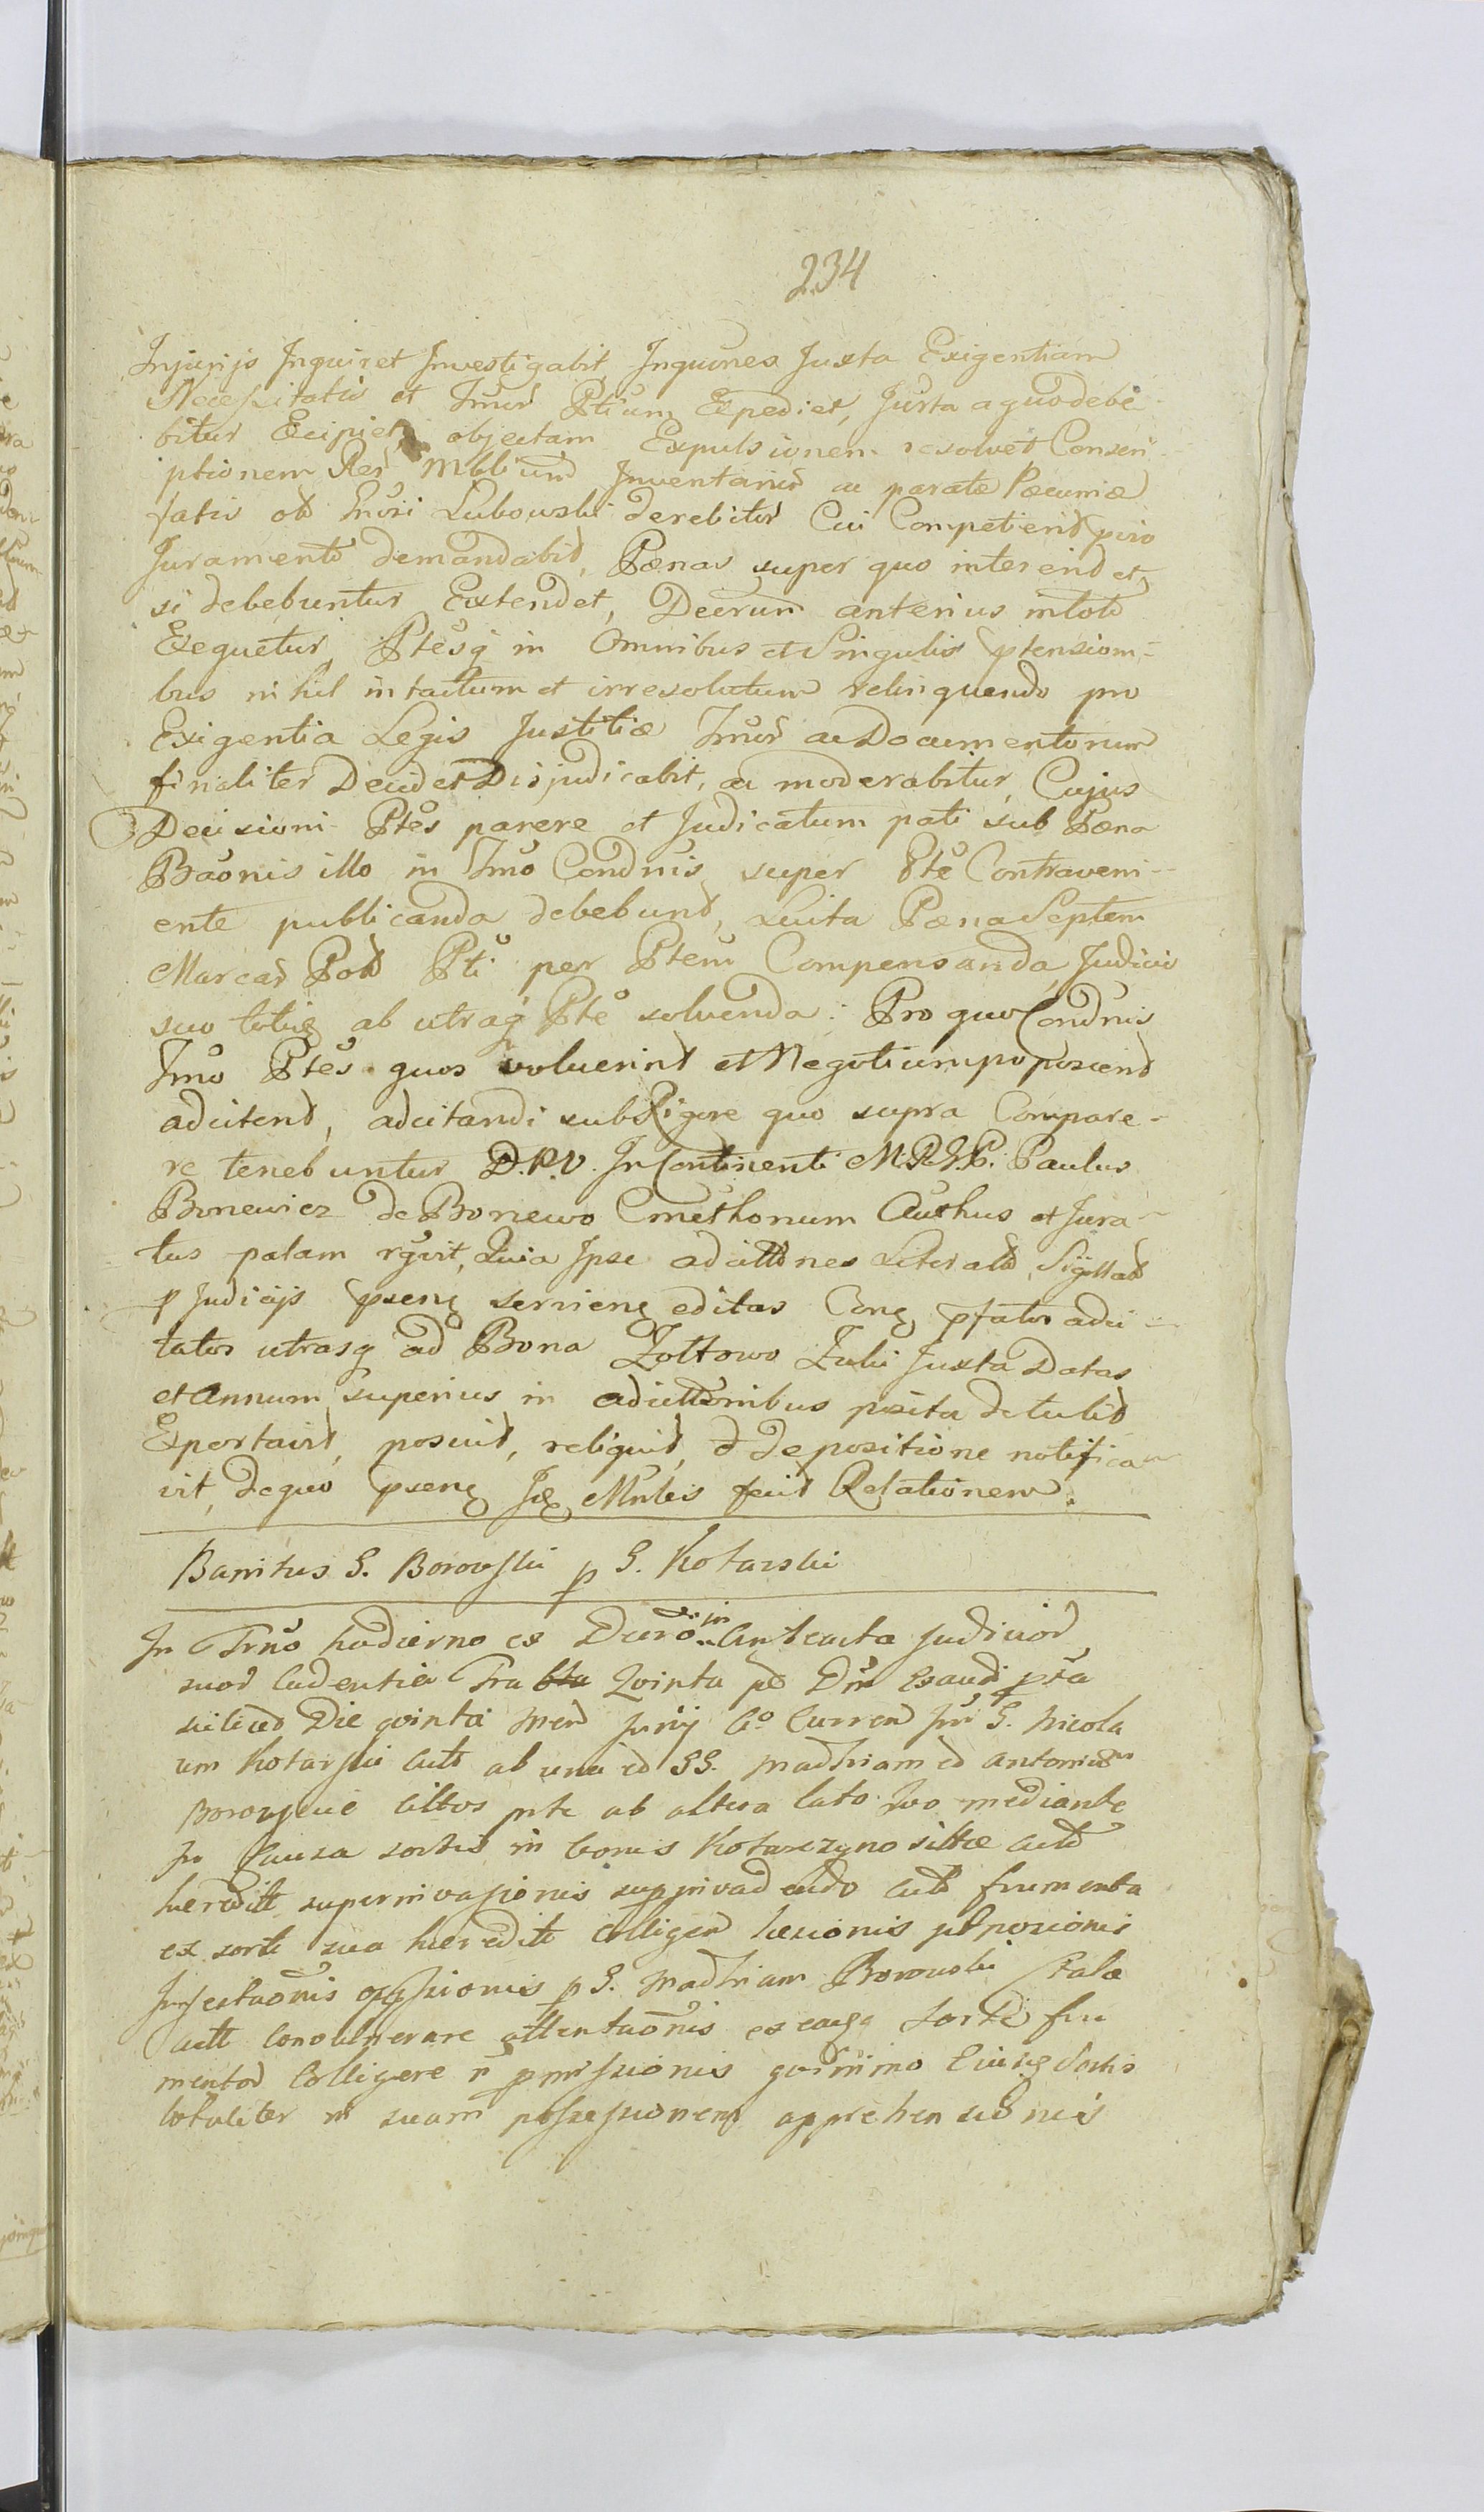 234
Injurijs Inquiret Investigabit Inquiones Juxta Exigentiam
Necessitatis et Jmur Ptium Expediet, Jurta a quo debe
bitur Excipiet objectam Expulsionem resolvet Conscri
ptionem Rer Mbbliund Inventarior ac parata Pecunia
fatis ob Lubowski derelictor Cui Competierit
Juramento demandabit, Pænas super quo intererit et
si debebuntur Extendet, Decrum anterius intoto
Exequetur Ptesq in Omnibus et Singulis ptension-
bus nihil intactum et irresolutum relinquendo pro
Exigentia Legis Justitiæ Jmur ac Documentorum
finaliter Decidet Disjudicabit, ac moderabitur, Cujus
Decisioni Ptes parere et Judicatum pati sub Pæna
Baonis illo in Tmo Condnis super Pte Contraveni-
ente publicanda debebunt, Luita Pæna Septem
Marcar Pol Pti per Ptem Compensanda, Judicio
suo totiq ab utraq Pte solvenda: Pro quo Condnis
Tmo Ptes quos voluerint et Negotium poposcerit
adcitent, adcitandi sub Rigore quo supra Compare-
re tenebuntur D.P.V. In Continenti M.R.G.P. Paulus
Bonewicz de Bonewo Cmethonum Authus et Jura-
tus palam rgvit, Quia Ipse adcittones Literatt, Sigillatt
p Judicijs psenq servienq editas Conq pfatos adci-
tatos utrasq ad Bona Zottowo Zuki Juxta Datas
et Annum superius in adcittonibus posita detulit
Exportavit, posuit, reliquit, d depositione notifica-
vit, de quo psenq Jq Mnlis fecit Relationem.
Banitus G. Borowski p G. Kotarski
In Trno hodierno ex Decro in Anteacta Judicior
suor Cadentia Fra Qvinta pd Dm Exaudi pta
scilicet Die qvinta Men Junij Ao Curren Inr G. Nicola
um Kotarski Actt ab una et GG. Mathiam et Antonium
Borowskie Cittos pte ab altera lato suo mediante
In Causa sortis in bonis Kotarczyno sittæ Actt
heredit superinvasionis supinvadendo Actt frumenta
ex sorte sua hæredit Colligen læsionis
Infestationis p G. Mathiam Borowski Pala
Actt Convulnerare attentaonis ex eaq sorte fru
mentor Colligere n pmissionis qvinimo Eiusq sortis
totaliter in suam possessionem apprehensionis